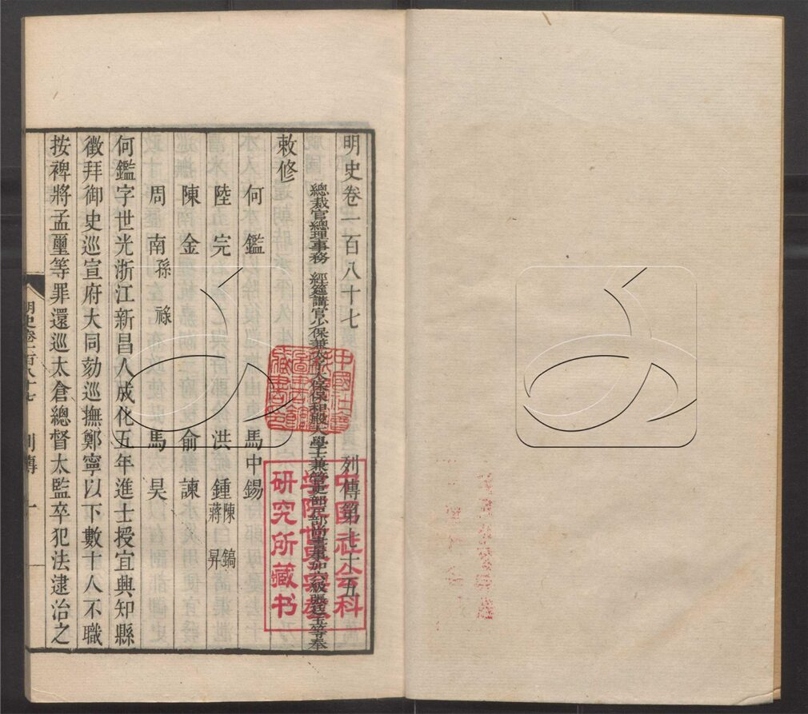 明史卷一百八十七 列傳第七十五
總裁官總理事務 經筵講官少保兼太子太保保和殿大學士兼管吏部戶部尚書事加六級張廷玉等奉
敕修
何鑑 馬中錫
陸完 洪鍾 陳鎬 蔣昇
陳金 俞諫
周南 孫祿 馬昊
何鑑字世光浙江新昌人成化五年進士授宜興知縣
徵拜御史巡宣府大同劾巡撫鄭寧以下數十人不職
按裨將孟璽等罪還巡太倉總督太監卒犯法逮治之
明史卷一百八十七 列傳 一
中國社會科
學院歷史
研究所藏书